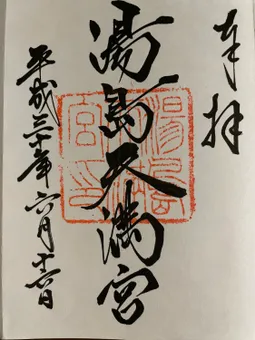 奉拝
湯島天満宮
平成三十年六月十六日